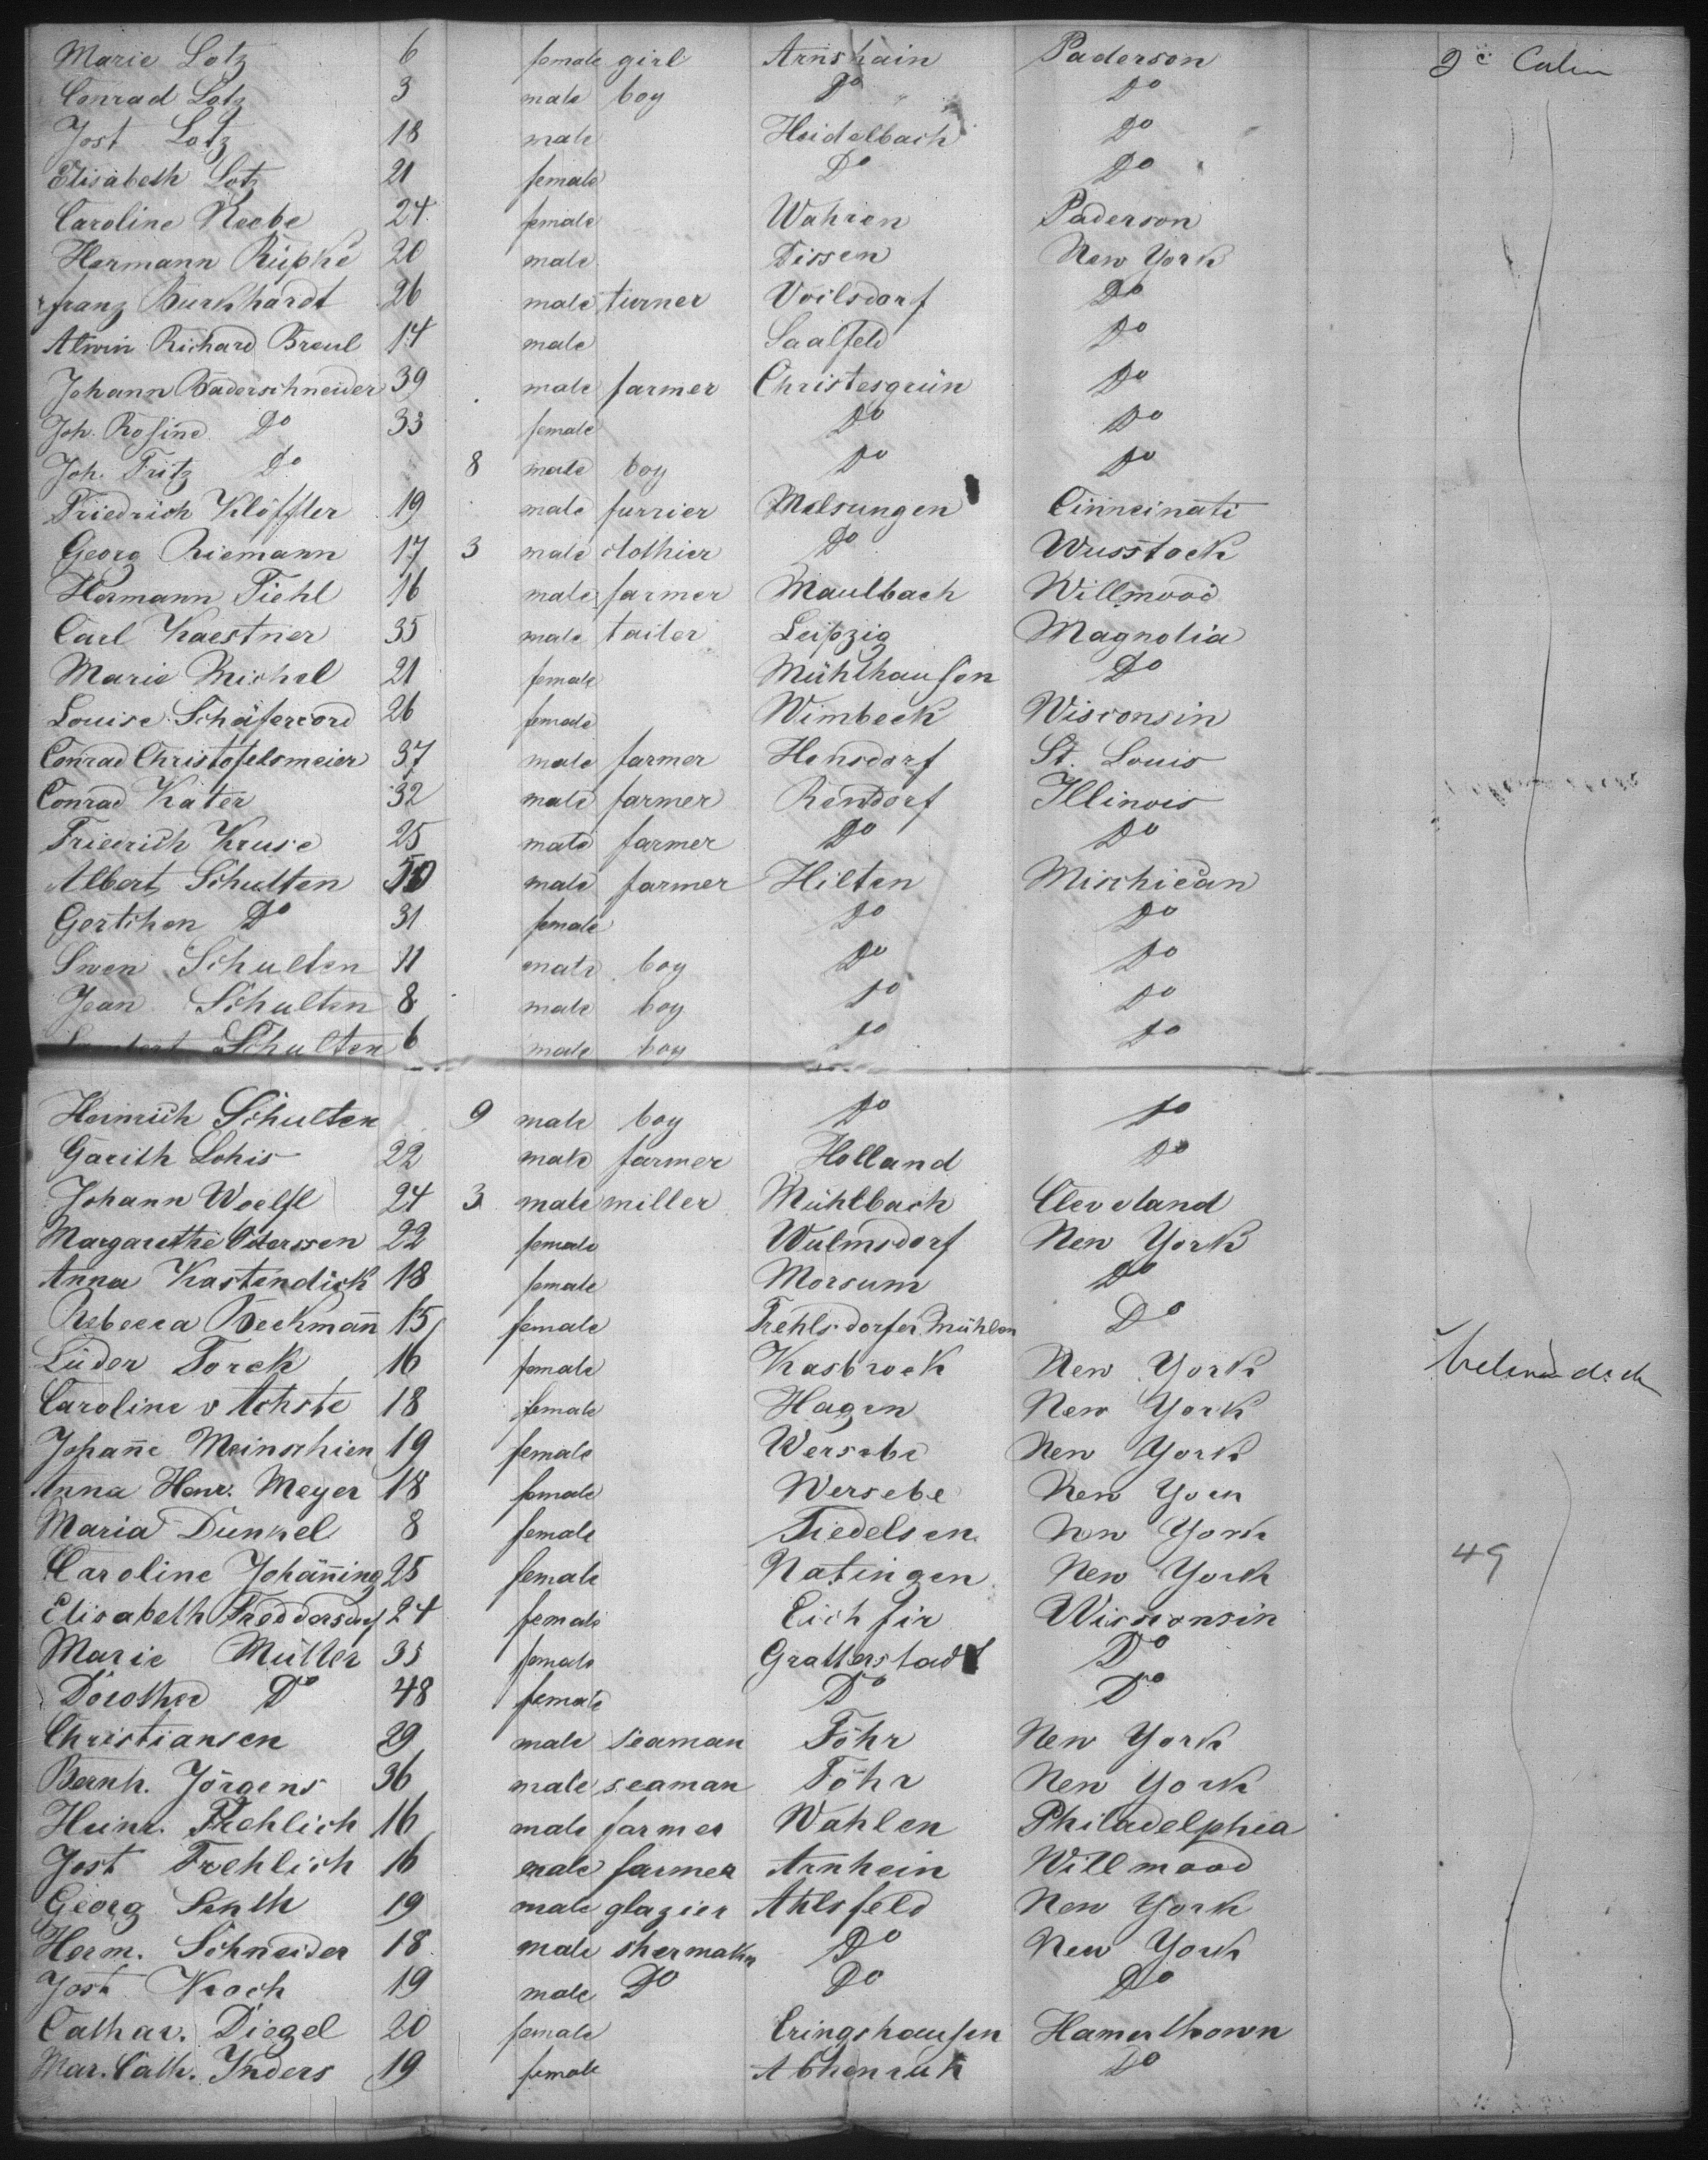 Marie Lotz 6 female girl Arnshain Paderson 2c Cabin
Conrad Lotz 3 male boy Do Do
Jost Lotz 18 male Heidelbach Do
Elisabeth Lotz 21 female Do Do
Caroline Reebe 24 female Wahren Paderson
Hermann Rüpke 20 male Dissen New York
Franz Burkhardt 26 male turner Voilsdorf Do
Alwin Richard Breul 14 male Saalfeld Do
Johann Baderschneider 39 male farmer Christesgrün Do
Joh. Rosine Do 33 female Do Do
Joh. Fritz Do 8 male boy Do Do
Friedrich Klöffler 19 male furrier Melsungen Cinneinati
Georg Riemann 17 3 male clothier Do Wusstock
Hermann Diehl 16 male farmer Maulbach Willmood
Carl Kaestner 35 male tailer Leipzig Magnolia
Marie Michel 21 female Mühlhausen Do
Louise Schäfercord 26 female Wimbeck Wisconsin
Conrad Christofelsmeier 37 male farmer Hensdorf St. Louis
Conrad Kater 32 male farmer Rendorf Illinois
Friedrich Kruse 25 male farmer Do Do
Albert Schulten 50 male farmer Hilten Mischican
Gertchen Do 31 female Do Do
Swen Schulten 11 male boy Do Do
Jean Schulten 8 male boy Do Do
Schulten 6 male boy Do Do
Heinrich Schulten 9 male boy Do Do
Garith Lohis 22 male farmer Holland Do
Johann Woelfl 24 3 male miller Mühlbach Cleveland
Margarethe 22 female Wulmsdorf New York
Anna Kastendick 18 female Morsum Do
Rebecca Beckmañ 15 female Frehlsdorfer Mühlen Do
Lüder Torck 16 female Kasbrock New York
Caroline v Achste 18 female Hagen New York
Johañe Meinschien 19 female Wersebe New York
Anna Henr. Meyer 18 female Wersebe New York
Maria Dunkel 8 female Tiedelsen New York
Caroline Johañing 25 female Natingen New York 49
Elisabeth 24 female Eichfir Wisconsin
Marie Müller 33 female Gratterstadt Do
Dorothea Do 48 female Do Do
Christiansen 29 male seaman Föhr New York
Bernh. Jörgens 36 male seaman Föhr New York
Heinr. Frehlich 16 male farmer Wahlen Philadelphia
Jost Frehlich 16 male farmer Arnhein Willmood
Georg Senth 19 male glazier Ahlsfeld New York
Herm. Schneider 18 male shermaker Do New York
Jost Kroch 19 male Do Do Do
Cathar. Diegel 20 female Eringshausen Hamerthown
Mar. Cath. Ynders 19 female Abhenruh Do